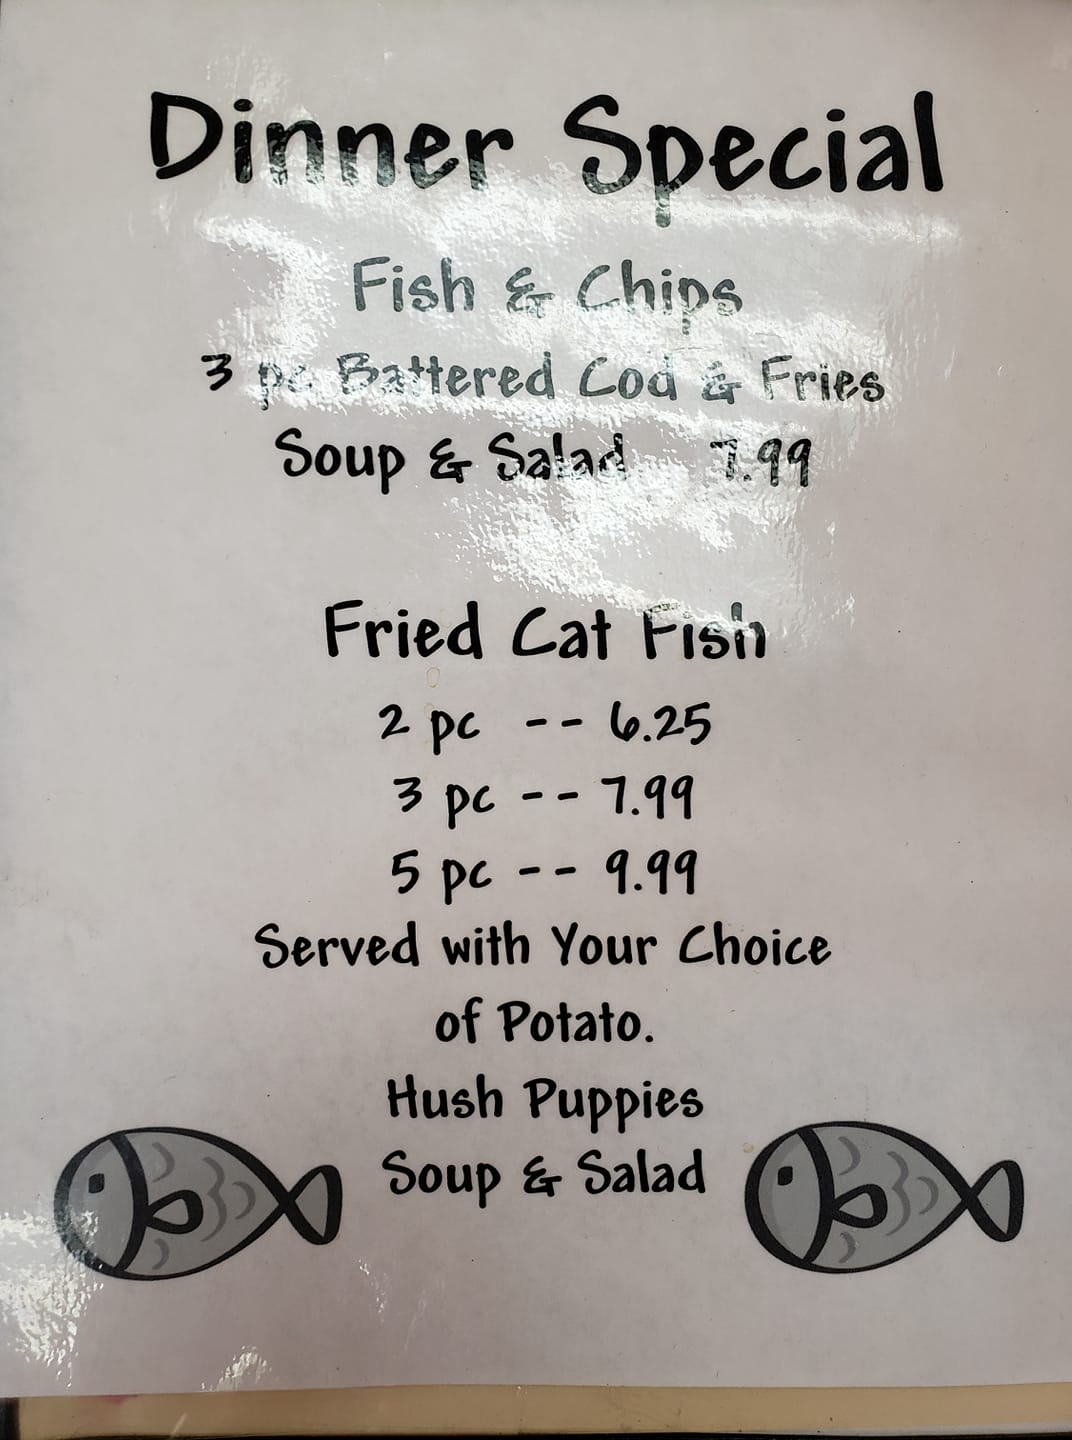 Dinner Special
Fish & Chips
3 pc Battered Cod & Fries
Soup & Salad 7.99
Fried Cat Fish
2 pc -- 6.25
3 pc -- 7.99
5 pc -- 9.99
Served with Your Choice
of Potato.
Hush Puppies
Soup & Salad